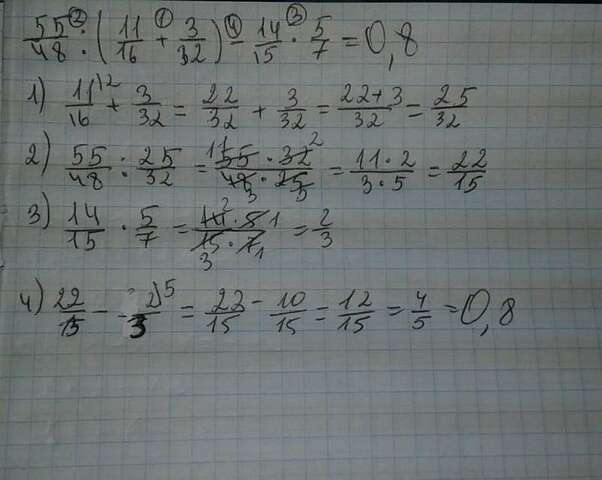 55/48 : (11/16 + 3/32) - 14/15 · 5/7 = 0,8
1) 11/16 + 3/32 = 22/32 + 3/32 = 22+3/32 = 25/32
2) 55/48 : 25/32 = 55 · 32/48 · 25 = 11 · 2/3 · 5 = 22/15
3) 14/15 · 5/7 = 14 · 5/15 · 7 = 2/3
4) 22/15 - 2/3 = 22/15 - 10/15 = 12/15 = 4/5 = 0,8